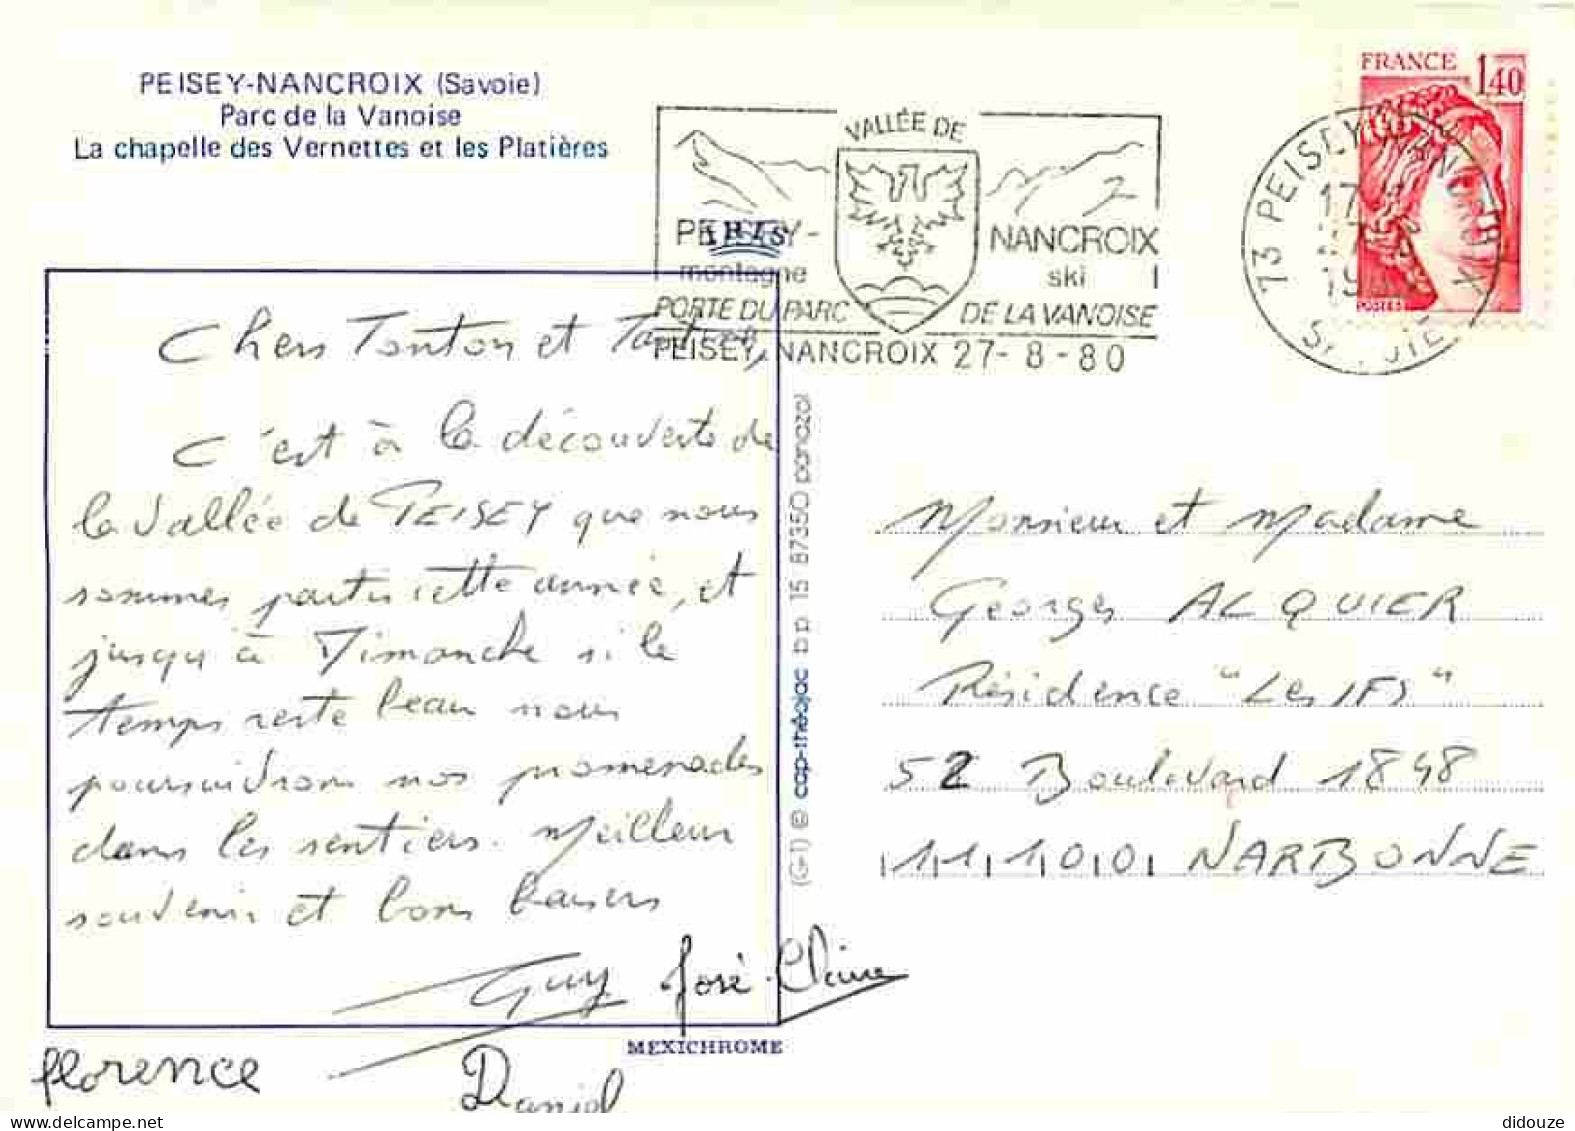 PEISEY-NANCROIX (Savoie)
Parc de la Vanoise
La chapelle des Vernettes et les Platières
FRANCE 1,40
VALLÉE DE
PEISEY-NANCROIX
montagne ski
PORTE DU PARC DE LA VANOISE
PEISEY NANCROIX 27-8-80
73 PEISEY NANCROIX
Chers Tonton et
C'est à la découverte de
la vallée de PEISEY que nous
sommes partis cette année, et
jusqu'à Dimanche si le
temps reste beau nous
poursuivrons nos promenades
dans les sentiers. Meilleur
souvenir et bons baisers
Guy José-Claire
florence
Daniel
MEXICHROME
(G-1) © cap-théojac bp 15 87350 panazol
Monsieur et Madame
Georges ALQUIER
Résidence "Les IFS"
52 Boulevard 1848
11100 NARBONNE
www.delcampe.net
didouze